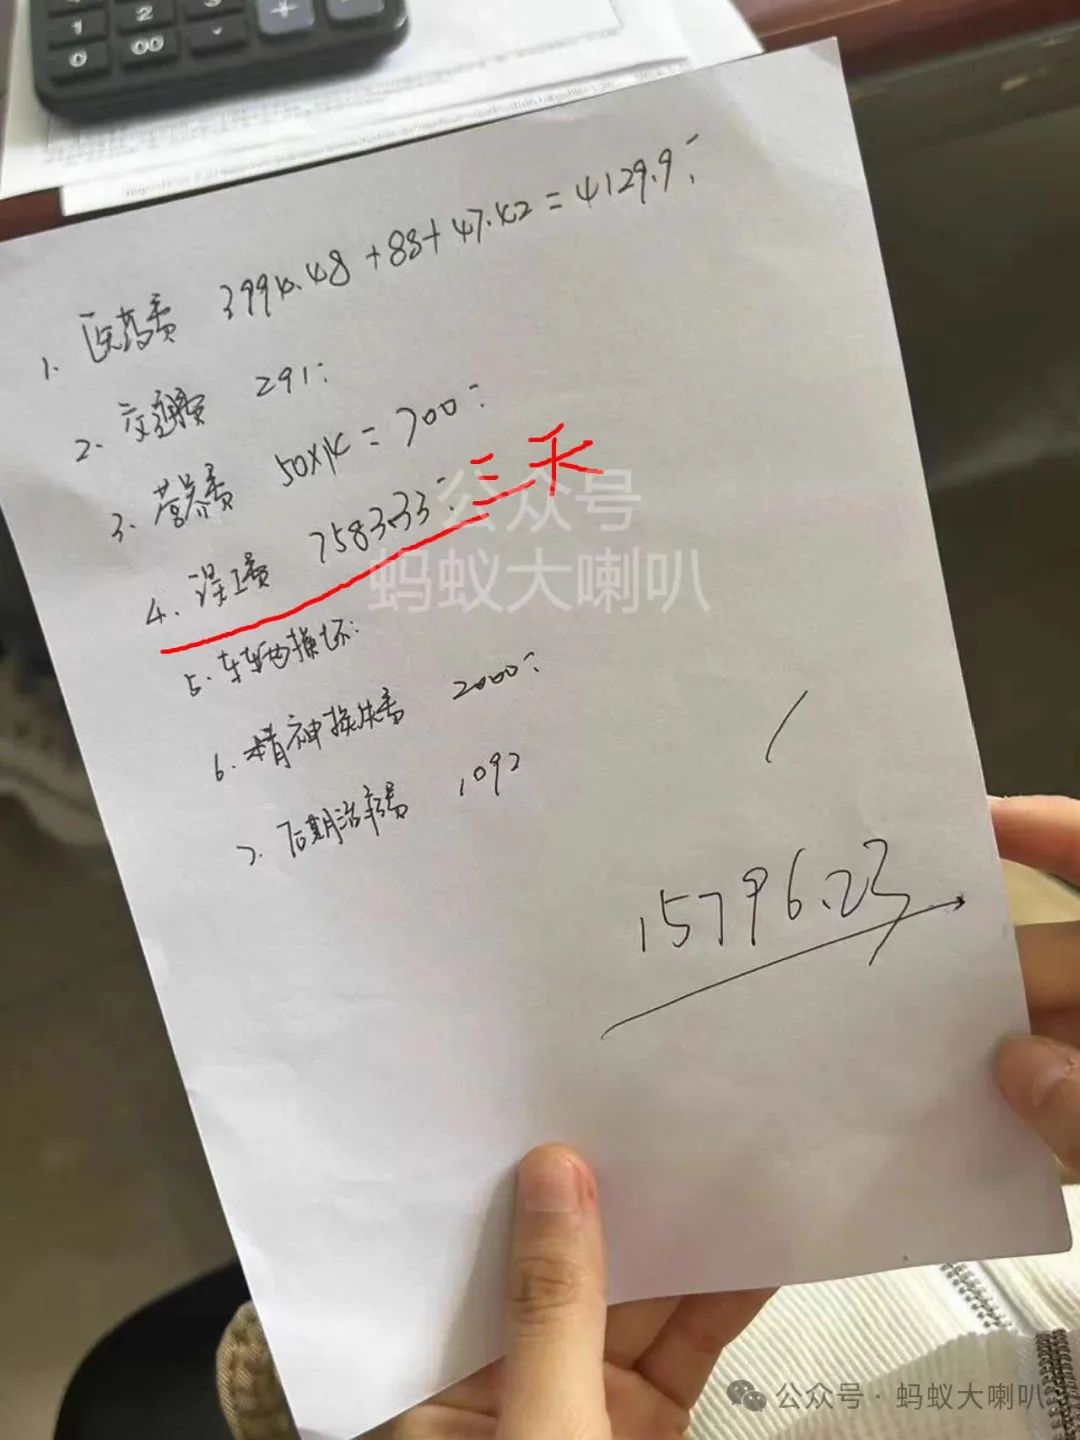 1
2
3
0
00
·
1. 医药费 3994.48+88+47.42=4129.9:
2. 交通费 291:
3. 营养费 50×14=700:
4. 误工费 7583.33: 三天
5. 车辆损坏:
6. 精神损失费 2000:
7. 后期治疗费 1092
15796.23
公众号
蚂蚁大喇叭
公众号·蚂蚁大喇叭